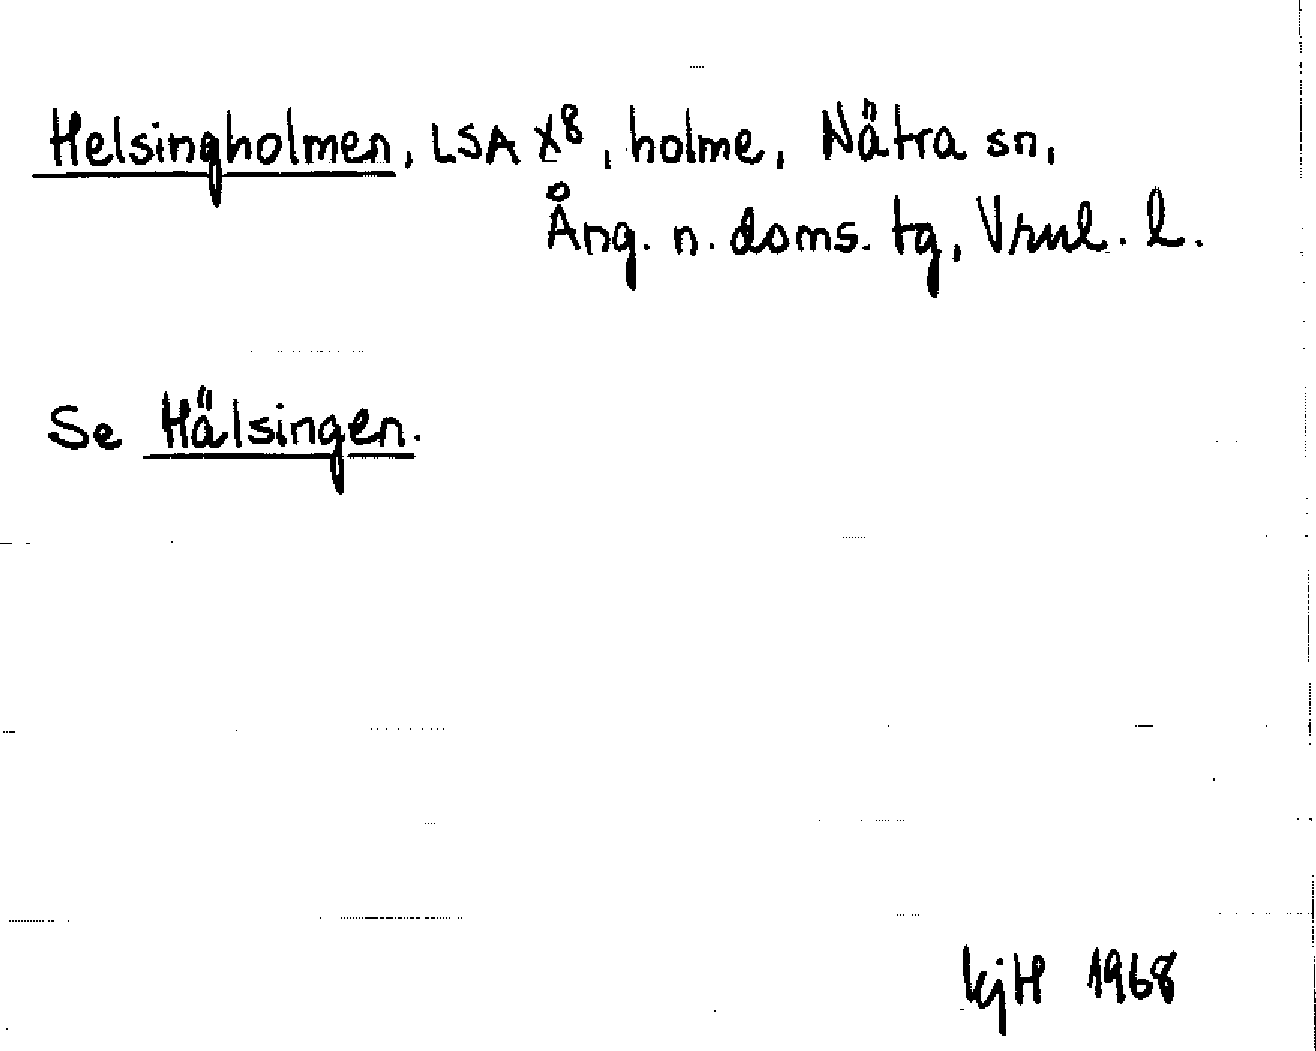 Helsingholmen, LSA X8, holme, Nätra sn,
Ång. n. doms. tg, Vrnl. l.
Se Hälsingen.
kjH 1968